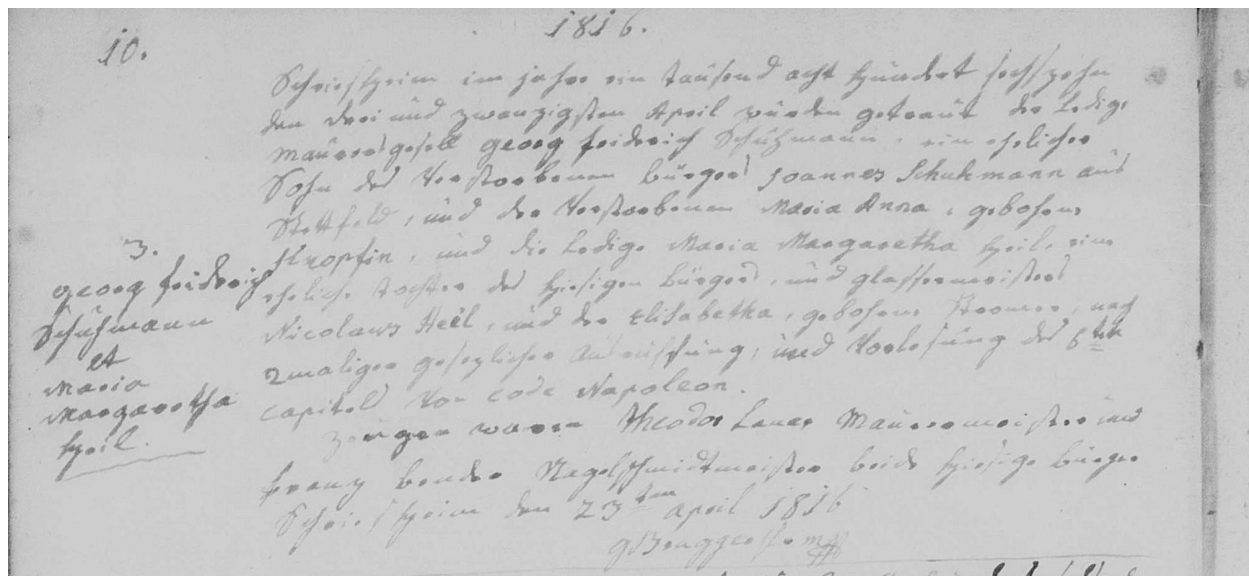 10.
1816.
Schriesheim im jahre ein tausend acht hundert sechszehn
den drei und zwanzigsten April wurden getraut der Ledige
Maurersgesell georg fridrich Schuhmann, ein ehelicher
Sohn des Verstorbenen bürgers Joannes Schuhmann aus
Stettfeld, und der Verstorbenen Maria Anna, gebohrne
und die Ledige Maria Margaretha Heil, eine
eheliche tochter des hiesigen bürgers, und glassermeisters
Nicolaus Heil, und der Elisabetha, gebohrne nach
2maliger gesezlicher Ausruffung, und Vorlesung des 6ten
Capitels Von Code Napoleon.
zeugen waren Theodor Lauer Maurermeister und
franz bender Nagelschmidtmeister beide hiesige bürger
Schriesheim den 23ten april 1816
3.
georg fridrich
Schuhmann
et
Maria
Margaretha
Heil.